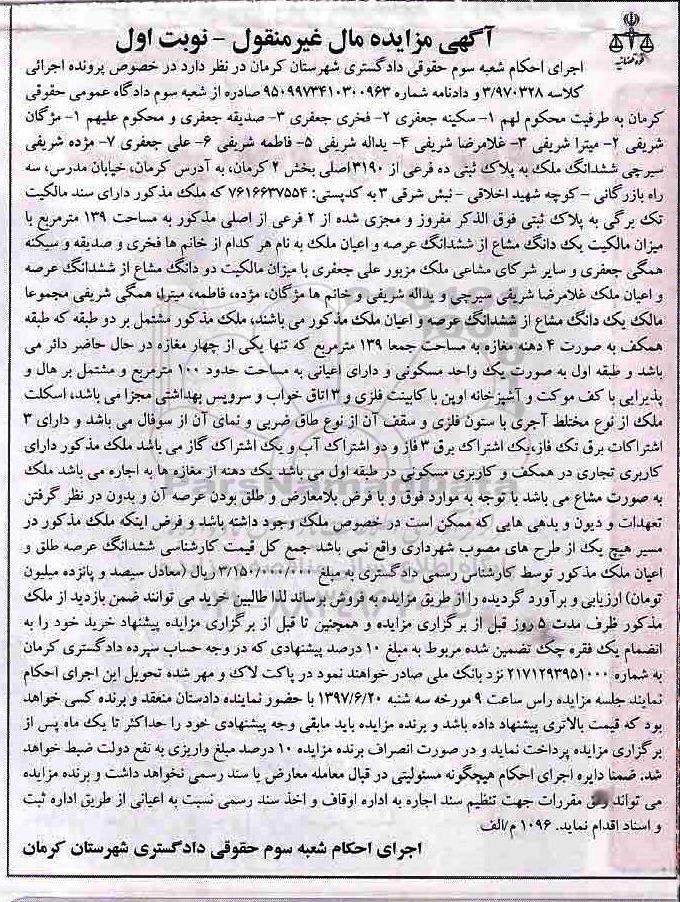 آگهی مزایده مال غیرمنقول - نوبت اول
قوه قضائیه
اجرای احکام شعبه سوم حقوقی دادگستری شهرستان کرمان در نظر دارد در خصوص پرونده اجرائی
کلاسه ۳/۹۷۰۳۲۸ و دادنامه شماره ۹۵۰۹۹۷۳۴۱۰۳۰۰۹۶۳ صادره از شعبه سوم دادگاه عمومی حقوقی
کرمان به طرفیت محکوم لهم ۱- سکینه جعفری ۲- فخری جعفری ۳- صدیقه جعفری و محکوم علیهم ۱- مژگان
شریفی ۲- میترا شریفی ۳- غلامرضا شریفی ۴- یداله شریفی ۵- فاطمه شریفی ۶- علی جعفری ۷- مژده شریفی
سیرچی ششدانگ ملک به پلاک ثبتی ده فرعی از ۳۱۹۰اصلی بخش ۲ کرمان، به آدرس کرمان، خیابان مدرس، سه
راه بازرگانی - کوچه شهید اخلاقی - نبش شرقی ۳ به کدپستی: ۷۶۱۶۶۳۷۵۵۴ که ملک مذکور دارای سند مالکیت
تک برگی به پلاک ثبتی فوق الذکر مفروز و مجزی شده از ۲ فرعی از اصلی مذکور به مساحت ۱۳۹ مترمربع با
میزان مالکیت یک دانگ مشاع از ششدانگ عرصه و اعیان ملک به نام هر کدام از خانم ها فخری و صدیقه و سکینه
همگی جعفری و سایر شرکای مشاعی ملک مزبور علی جعفری با میزان مالکیت دو دانگ مشاع از ششدانگ عرصه
و اعیان ملک غلامرضا شریفی سیرچی و یداله شریفی و خانم ها مژگان، مژده، فاطمه، میترا، همگی شریفی مجموعا
مالک یک دانگ مشاع از ششدانگ عرصه و اعیان ملک مذکور می باشند، ملک مذکور مشتمل بر دو طبقه که طبقه
همکف به صورت ۴ دهنه مغازه به مساحت جمعا ۱۳۹ مترمربع که تنها یکی از چهار مغازه در حال حاضر دائر می
باشد و طبقه اول به صورت یک واحد مسکونی و دارای اعیانی به مساحت حدود ۱۰۰ مترمربع و مشتمل بر هال و
پذیرایی با کف موکت و آشپزخانه اوپن با کابینت فلزی و ۳ اتاق خواب و سرویس بهداشتی مجزا می باشد، اسکلت
ملک از نوع مختلط آجری با ستون فلزی و سقف آن از نوع طاق ضربی و نمای آن از سوفال می باشد و دارای ۳
اشتراکات برق تک فاز،یک اشتراک برق ۳ فاز و دو اشتراک آب و یک اشتراک گاز می باشد ملک مذکور دارای
کاربری تجاری در همکف و کاربری مسکونی در طبقه اول می باشد یک دهنه از مغازه ها به اجاره می باشد ملک
به صورت مشاع می باشد با توجه به موارد فوق و با فرض بلامعارض و طلق بودن عرصه آن و بدون در نظر گرفتن
تعهدات و دیون و بدهی هایی که ممکن است در خصوص ملک وجود داشته باشد و فرض اینکه ملک مذکور در
مسیر هیچ یک از طرح های مصوب شهرداری واقع نمی باشد جمع کل قیمت کارشناسی ششدانگ عرصه طلق و
اعیان ملک مذکور توسط کارشناس رسمی دادگستری به مبلغ ۳/۱۵۰/۰۰۰/۰۰۰ ریال (معادل سیصد و پانزده میلیون
تومان) ارزیابی و برآورد گردیده را از طریق مزایده به فروش برساند لذا طالبین خرید می توانند ضمن بازدید از ملک
مذکور ظرف مدت ۵ روز قبل از برگزاری مزایده و همچنین تا قبل از برگزاری مزایده پیشنهاد خرید خود را به
انضمام یک فقره چک تضمین شده مربوط به مبلغ ۱۰ درصد پیشنهادی که در وجه حساب سپرده دادگستری کرمان
به شماره ۲۱۷۱۲۹۳۹۵۱۰۰۰ نزد بانک ملی صادر خواهند نمود در پاکت لاک و مهر شده تحویل این اجرای احکام
نمایند جلسه مزایده راس ساعت ۹ مورخه سه شنبه ۱۳۹۷/۶/۲۰ با حضور نماینده دادستان منعقد و برنده کسی خواهد
بود که قیمت بالاتری پیشنهاد داده باشد و برنده مزایده باید مابقی وجه پیشنهادی خود را حداکثر تا یک ماه پس از
برگزاری مزایده پرداخت نماید و در صورت انصراف برنده مزایده ۱۰ درصد مبلغ واریزی به نفع دولت ضبط خواهد
شد. ضمنا دایره اجرای احکام هیچگونه مسئولیتی در قبال معامله معارض یا سند رسمی نخواهد داشت و برنده مزایده
می تواند وفق مقررات جهت تنظیم سند اجاره به اداره اوقاف و اخذ سند رسمی نسبت به اعیانی از طریق اداره ثبت
و اسناد اقدام نماید. ۱۰۹۶ م/الف
اجرای احکام شعبه سوم حقوقی دادگستری شهرستان کرمان
ParsNamadData